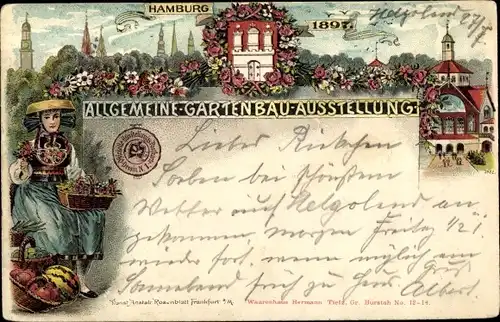 HAMBURG
1897.
Helgoland
ALLGEMEINE-GARTENBAU-AUSSTELLUNG.
Lieber
Soeben bei schönstem
Wetter auf Helgoland an
gekommen, morgen Freitag 1/2 1
wieder fort, wenn möglich am
Sonnabend früh zu Albert
Kunst Anstalt Rosenblatt Frankfurt a/M
Waarenhaus Hermann Tietz, Gr. Burstah No. 12-14.